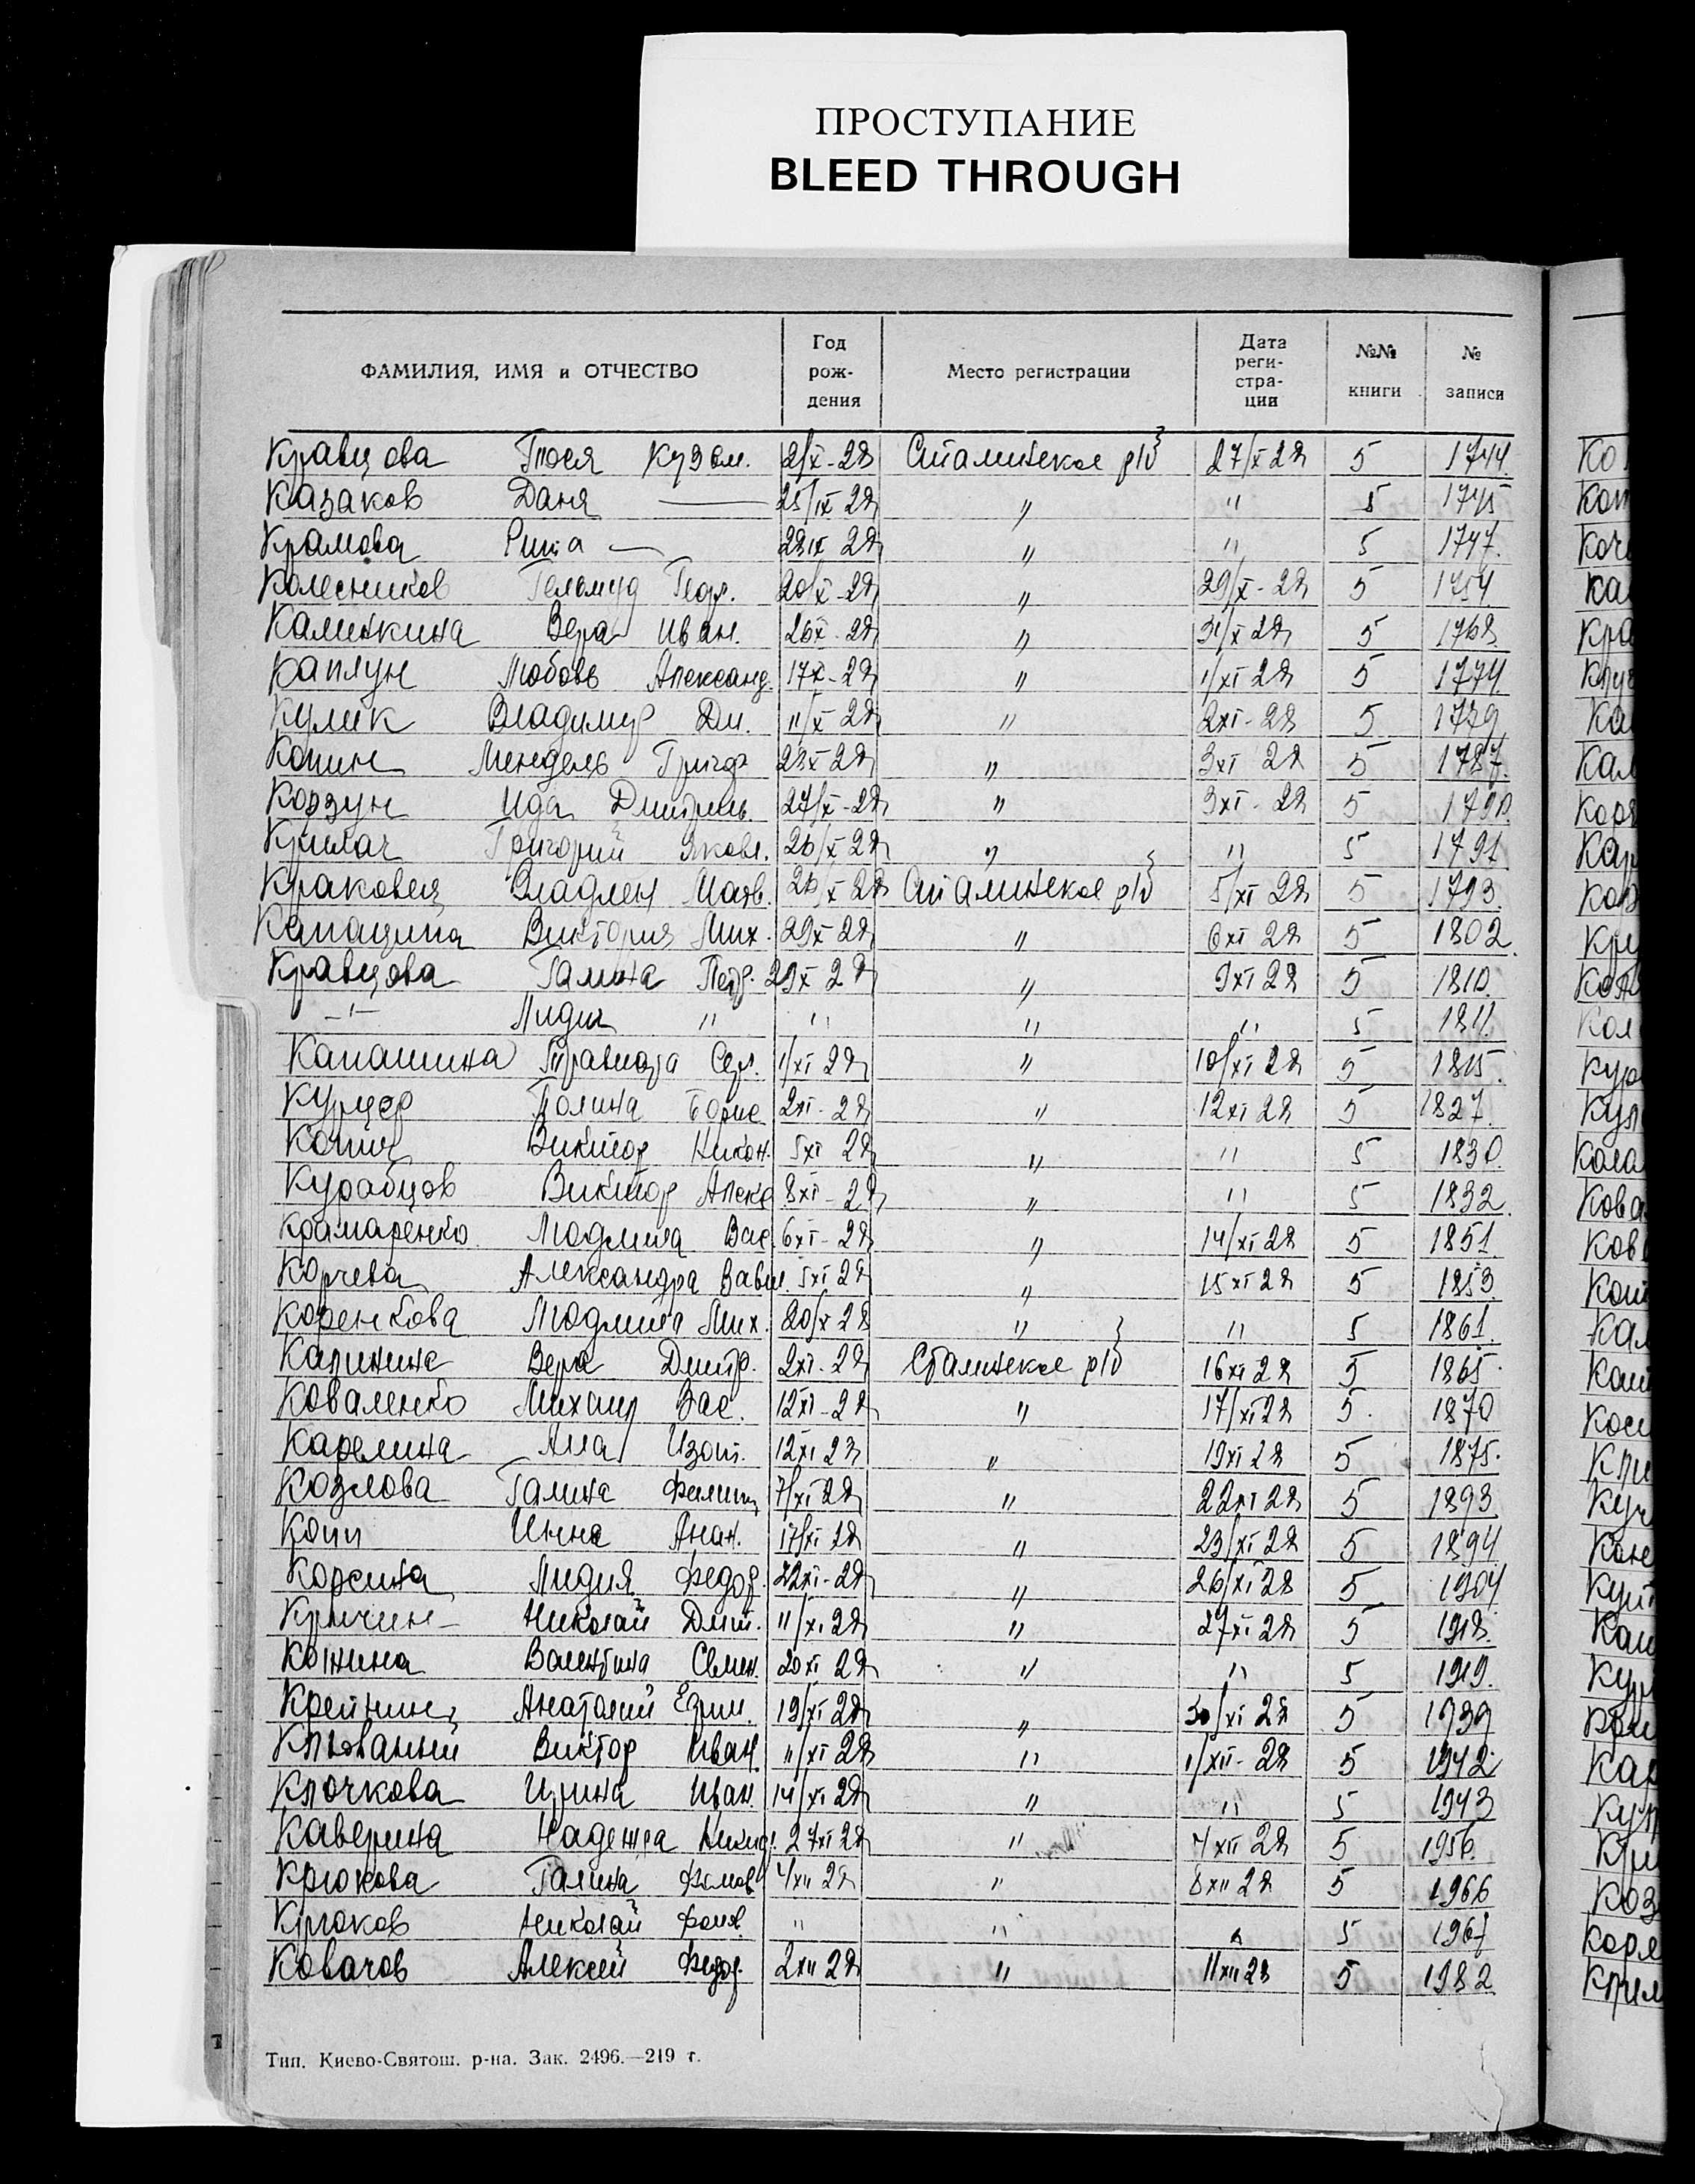 ПРОСТУПАНИЕ
BLEED THROUGH
ФАМИЛИЯ, ИМЯ и ОТЧЕСТВО Год рож- дения Место регистрации Дата реги- стра- ции №№ книги № записи
Кравцова Тося Кузьм. 2/X-28 Сталинское р/б 27/X 28 5 1744.
Казаков Даня — 25/IX 28 " " 5 1745
Крамова Рита — 28 IX 28 " " 5 1747.
Колесников Гельмуд Георг. 20/X-28 " 29/X-28 5 1754
Калинкина Вера Иван. 26 X-28 " 31/X 28 5 1768.
Каплун Любовь Александ. 17 X-28 " 1/XI 28 5 1774
Кулик Владимир Дм. 11/X-28 " 2 XI-28 5 1779
Копин Мендель Григор 23 X 28 " 3 XI 28 5 1787.
Корзун Ида Дмитриев. 27/X-28 " 3 XI-28 5 1790.
Григорий Яковл. 26/X 28 " " 5 1791
Краковец Владлен Матв. 26/X 28 Сталинское р/б 5/XI 28 5 1793.
Виктория Мих. 29 X-28 " 6 XI 28 5 1802.
Кравцова Галина Петр. 29 X 28 " 9 XI 28 5 1810.
—"— Лидия " " " " 5 1811.
Капашина Травиата Серг. 1/XI 28 " 10/XI 28 5 1815.
Курцер Полина Борис 2 XI-28 " 12 XI 28 5 1827.
Виктор Никон. 5 XI 28 " " 5 1830.
Курабцов Виктор Алекс 8 XI-28 " " 5 1832.
Крамаренко Людмила Вас. 6 XI-28 " 14/XI 28 5 1851.
Корчева Александра Вавил. 5 XI 28 " 15 XI 28 5 1853.
Коренкова Людмила Мих. 20/X 28 " " 5 1861.
Калинина Вера Дмитр. 2 XI-28 Сталинское р/б 16 XI 28 5 1865.
Коваленко Михаил Вас. 12 XI-28 " 17/XI 28 5. 1870
Карелина Алла Изот. 12 XI 28 " 19 XI 28 5 1875.
Козлова Галина Филип. 7/XI 28 " 22 XI 28 5 1893
Копп Инна Анан. 17/XI 28 " 23/XI 28 5 1894
Корсина Лидия Федор. 22 XI-28 " 26/XI 28 5 1904
Кричин Николай Дмит. 11/XI 28 " 27 XI 28 5 1918.
Конина Валентина Семен. 20 XI 28 " " 5 1919.
Крейнин Анатолий Ефим. 19/XI 28 " 30/XI 28 5 1939
Клёванный Виктор Иван. 11/XI 28 " 1/XII-28 5 1942
Клочкова Ирина Иван. 14/XI 28 " " 5 1943
Каверина Надежда Никиф. 27 XI 28 " 4 XII 28 5 1956.
Крюкова Галина Фомов 4 XII 28 " 8 XII 28 5 1966
Крюков Николай Фомв. " " " 5 1967
Ковачов Алексей Федор. 2 XII 28 " 11 XII 28 5 1982
Тип. Киево-Святош. р-на. Зак. 2496.—219 т.